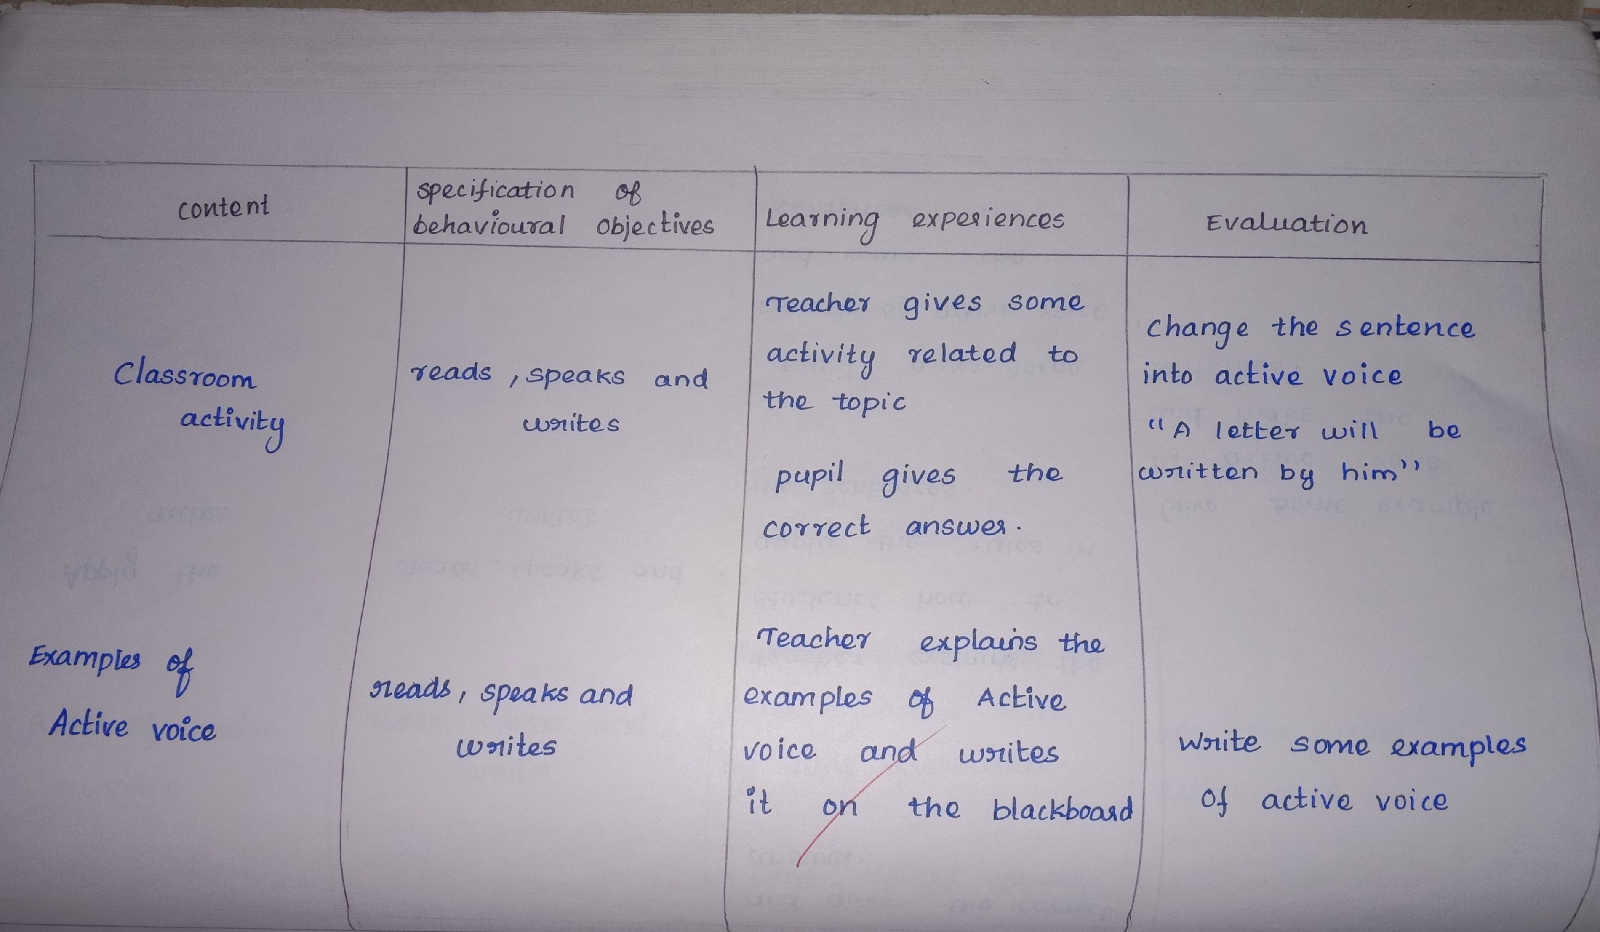 content
specification of
behavioural objectives
Learning experiences
Evaluation
Classroom
activity
reads, speaks and
writes
Teacher gives some
activity related to
the topic
pupil gives the
correct answer.
change the sentence
into active voice
"A letter will be
written by him"
Examples of
Active voice
reads, speaks and
writes
Teacher explains the
examples of Active
voice and writes
it on the blackboard
write some examples
of active voice